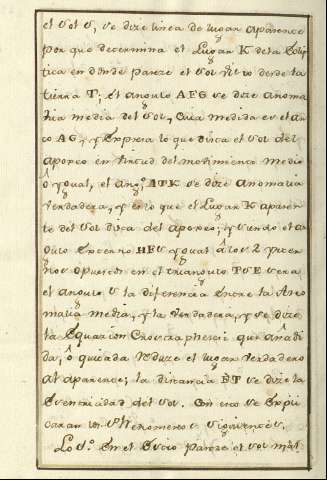 el Sol S, se dize linea de lugar aparente
por que determina el Lugar K de la Eclip
tica en donde pareze el Sol visto desde la
tierra T; el angulo AFG se dize anoma
lia media del Sol, Cuia medida es el ar
co AG, y Expresa lo que dista el Sol del
apogeo en virtud del movimiento medio
ô ygual, el ang.º ATK se dize anomalia
verdadera, y es lo que el Lugar K aparen
te del Sol dista del apogeo; y siendo el an
gulo Externo HFS ygual â los 2 ynter
nos opuestos en el triangulo TSF sera
el angulo S la diferencia entre la Ano
malia media, y la verdadera, y se dize
la Equacion que añadi
da, ô quitada reduze el lugar verdadero
al aparente; la distancia FT se dize la
Eventricidad del Sol. Con esto se Expli
caran los Phenomenos siguientes.
Lo 1.º En el Estio pareze el Sol mas